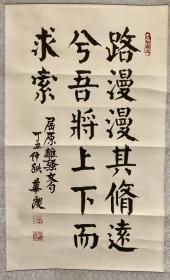 路漫漫其脩遠
兮吾將上下而
求索
屈原離騷文句
丁丑仲秋